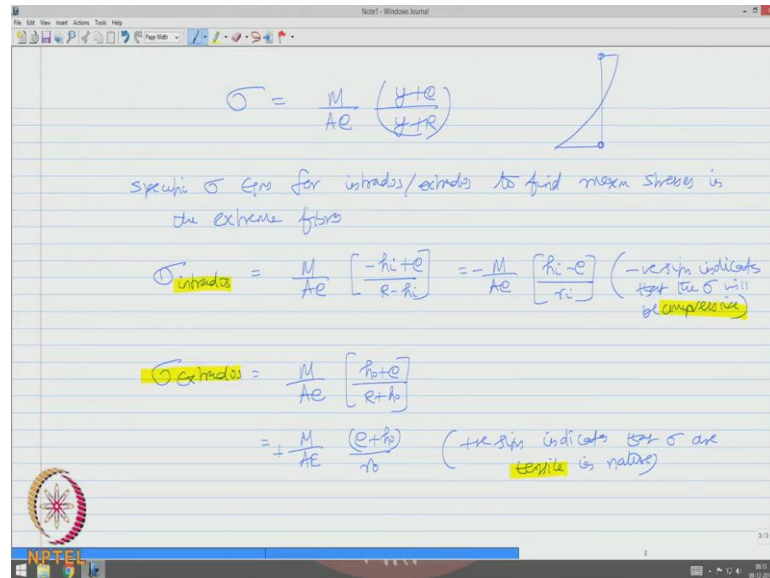 Note1 - Windows Journal
File Edit View Insert Actions Tools Help
Page Width
σ = M/Ae (y+e)/(y+R)
specific σ Eqns for intrados/extrados to find maxm stresses in
the extreme fibres
σ intrados = M/Ae [-hi+e]/[R-hi] = -M/Ae [hi-e]/[ri] (-ve sign indicates
that the σ will
be compressive)
σ extrados = M/Ae [ho+e]/[R+ho]
= + M/AE (e+ho)/ro (+ve sign indicates that σ are
tensile in nature)
NPTEL
3/3
3
08:13